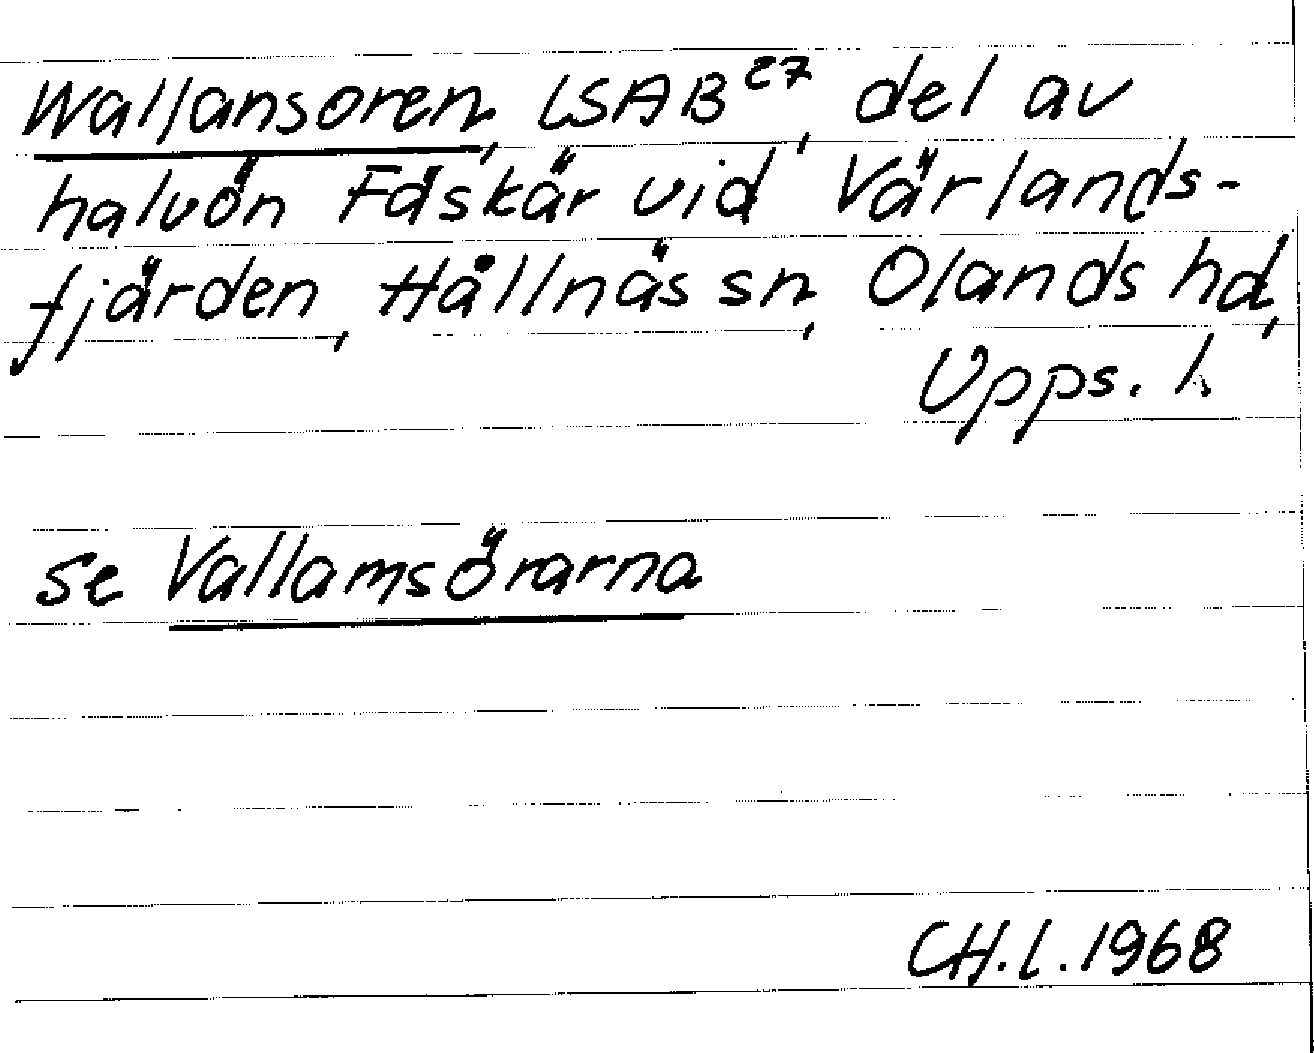 Wallansoren, LSAB 27, del av
halvön Fäskär vid Värlands-
fjärden, Hållnäs sn, Olands hd,
Upps. l.
se Vallamsörarna
CH.L. 1968